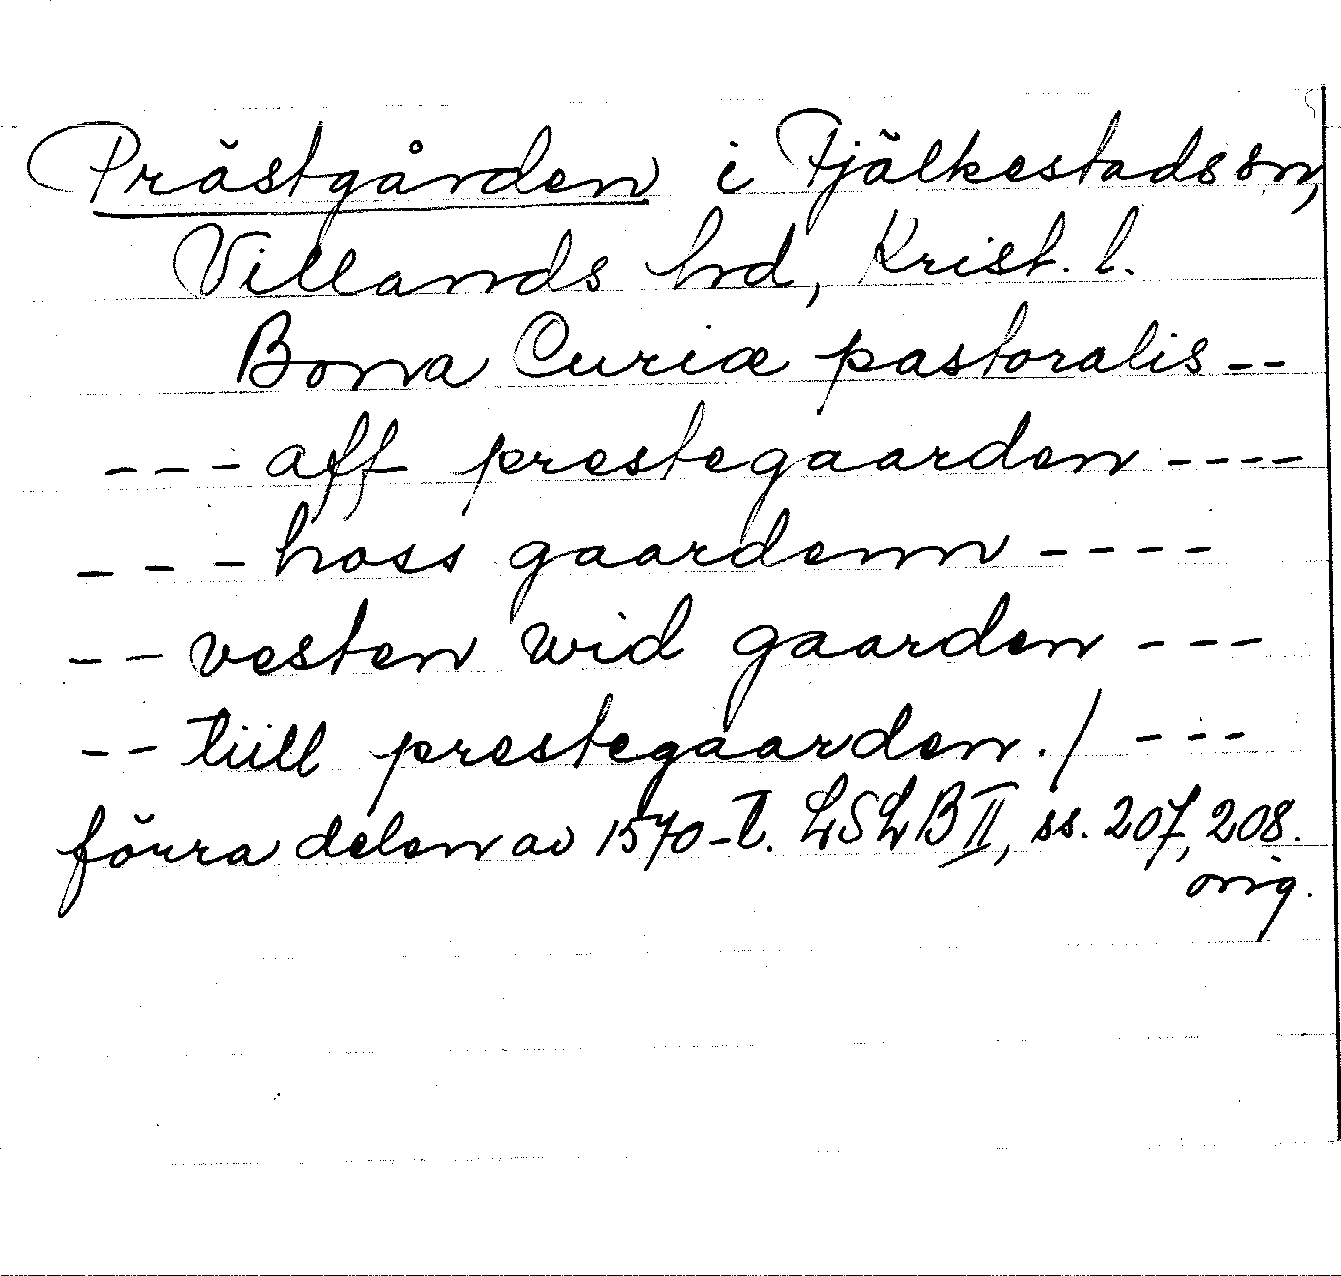 Prästgården i Fjälkestads sn,
Villands hd, Krist. l.
Bona Curiæ pastoralis --
--- aff prestegaarden ----
--- hoss gaardenn ----
-- vesten wid gaarden ---
-- tiill prestegaarden ./ ---
förra delen av 1570-t. LSLB II, ss. 207, 208.
orig.